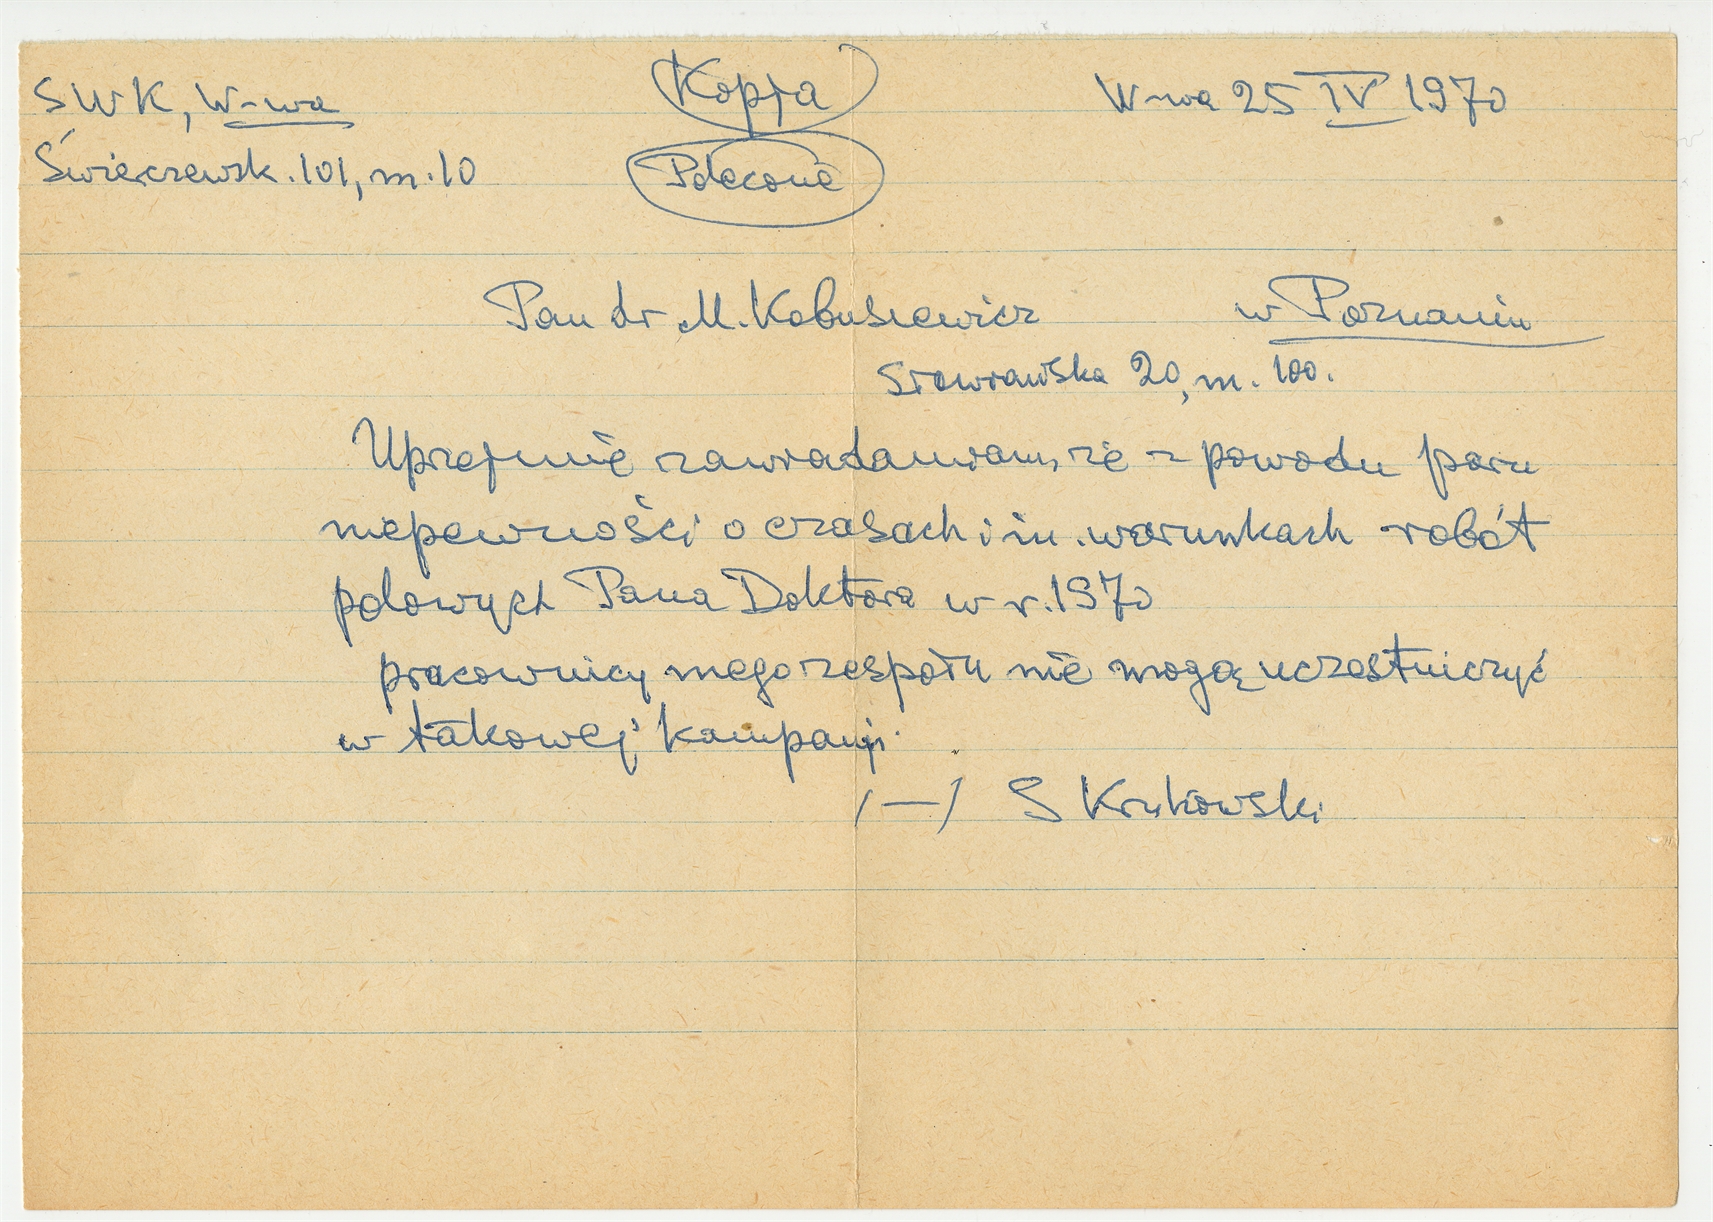 SWK, W-wa
Kopja
W-wa 25 IV 1970
Świerczewsk. 101, m. 10
Polecone
Pan dr M. Kobusiewicz w Poznaniu
20, m. 100.
Uprzejmie zawiadamiam, że z powodu paru
niepewności o czasach i in. warunkach robót
polowych Pana Doktora w r. 1970
pracownicy mego zespołu nie mogą uczestniczyć
w takowej kampanji.
/—/ S Krukowski